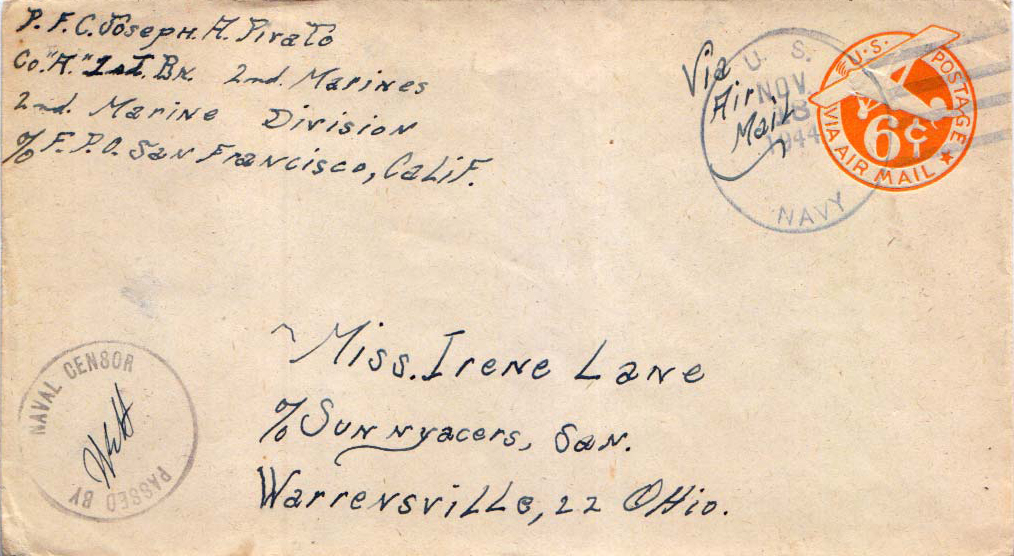 P.F.C. Joseph. A. Pirato
Co. "A." 1st. Bn. 2nd. Marines
2nd. Marine Division
% F.P.O. San Francisco, Calif.
Via
Air
Mail
U. S.
NOV
8
1944
NAVY
U.S. POSTAGE
6¢
VIA AIR MAIL
Miss. Irene Lane
% Sunnyacers, San.
Warrensville, 22 Ohio.
NAVAL CENSOR
PASSED BY